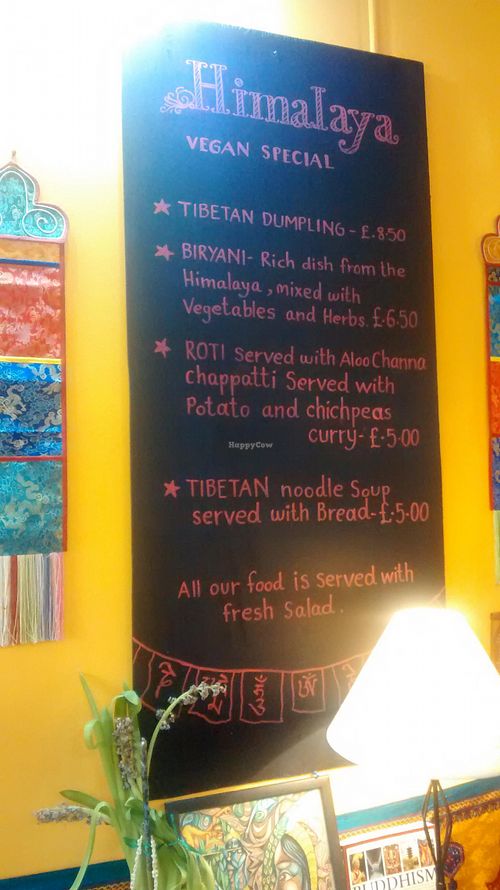 Himalaya
VEGAN SPECIAL
TIBETAN DUMPLING - £.8.50
BIRYANI- Rich dish from the
Himalaya, mixed with
Vegetables and Herbs. £.6.50
ROTI served with Aloo Channa
chappatti Served with
Potato and chichpeas
curry- £.5.00
HappyCow
TIBETAN noodle Soup
served with Bread- £.5.00
All our food is served with
fresh Salad.
BUDDHISM